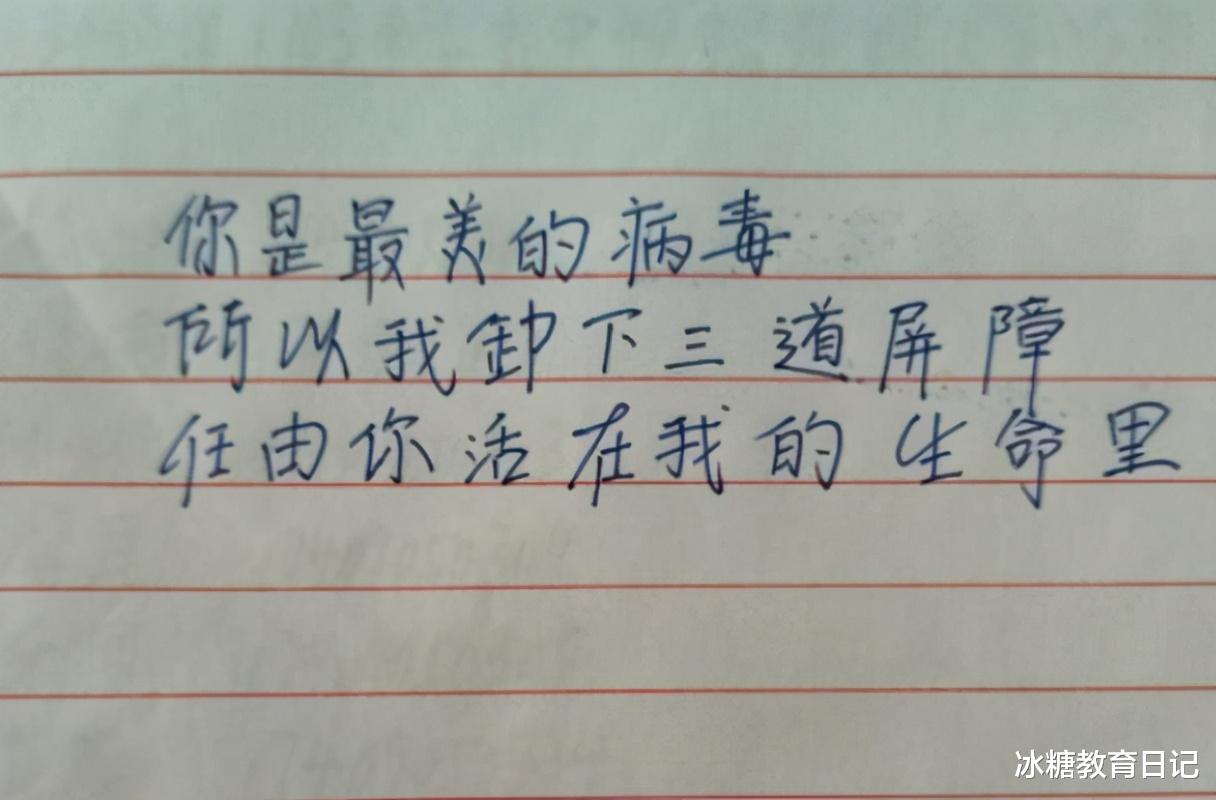 你是最美的病毒
所以我卸下三道屏障
任由你活在我的生命里
冰糖教育日记